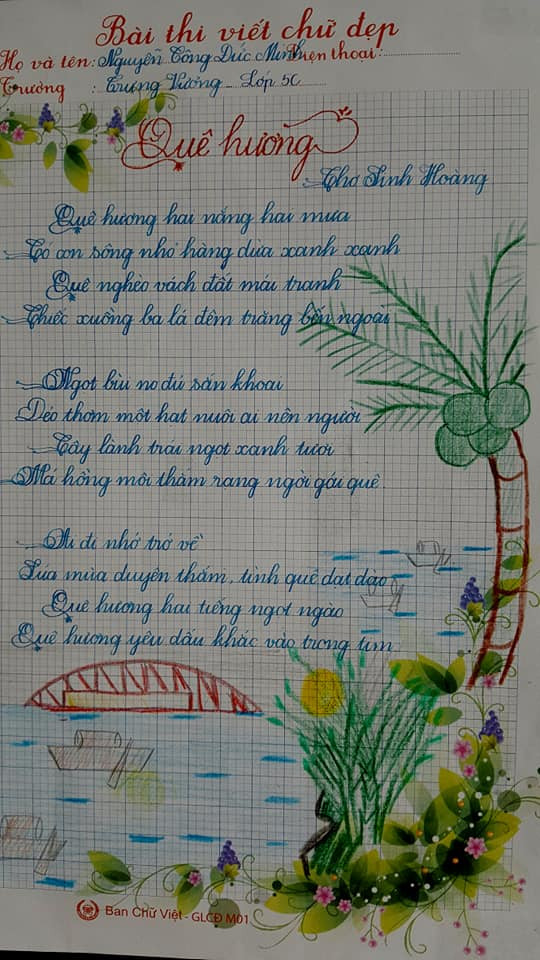 Bài thi viết chữ đẹp
Họ và tên: Nguyễn Công Đức Minh Điện thoại:
Trường : Trưng Vương - Lớp 5C
Quê hương
Thơ Sinh Hoàng
Quê hương hai nắng hai mưa
Có con sông nhỏ hàng dừa xanh xanh
Quê nghèo vách đất mái tranh
Chiếc xuồng ba lá đêm trăng bến ngoài
Ngọt bùi no đủ sắn khoai
Dẻo thơm một hạt nuôi ai nên người
Cây lành trái ngọt xanh tươi
Má hồng môi thắm rạng ngời gái quê.
Ai đi nhớ trở về
Lúa mùa duyên thắm, tình quê dạt dào
Quê hương hai tiếng ngọt ngào
Quê hương yêu dấu khắc vào trong tim
Ban Chữ Việt - GLCĐ M01